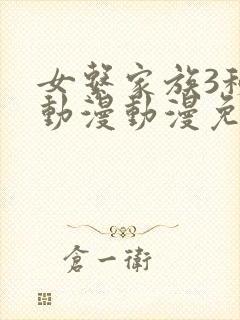 女繫家族3種
動漫動漫免
倉一衛